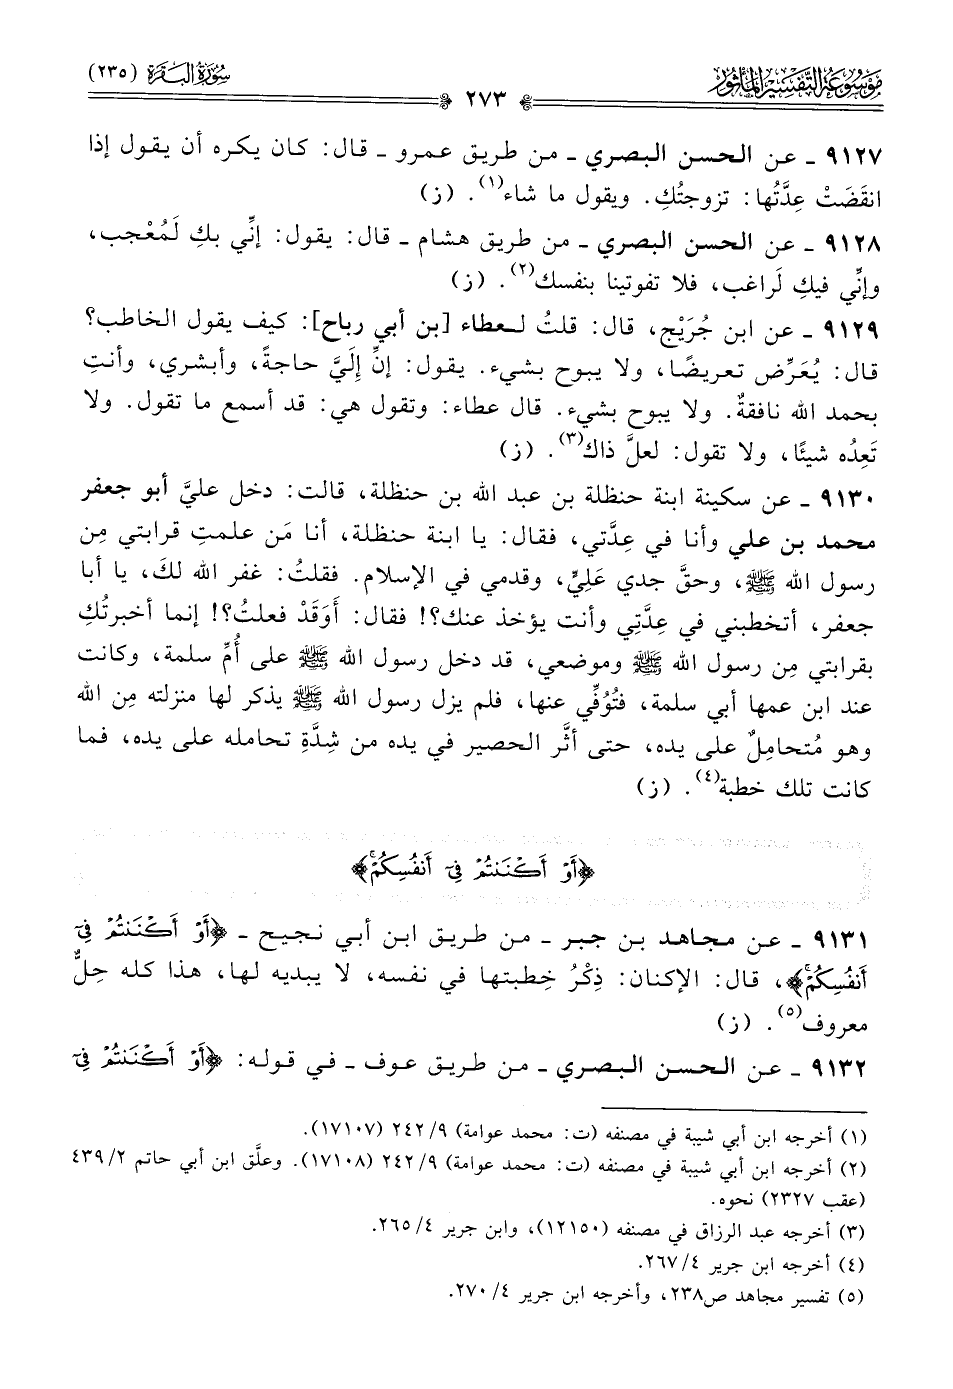 موسوعة التفسير المأثور
سورة البقرة (٢٣٥)
٢٧٣
٩١٢٧ ـ عن الحسن البصري ـ من طريق عمرو ـ قال: كان يكره أن يقول إذا
انقَضَتْ عِدَّتُها: تزوجتُكِ. ويقول ما شاء(١). (ز)
٩١٢٨ ـ عن الحسن البصري ـ من طريق هشام ـ قال: يقول: إنِّي بكِ لَمُعْجب،
وإنِّي فيكِ لَراغب، فلا تفوتينا بنفسك(٢). (ز)
٩١٢٩ ـ عن ابن جُرَيْج، قال: قلتُ لعطاء [بن أبي رباح]: كيف يقول الخاطب؟
قال: يُعَرِّض تعريضًا، ولا يبوح بشيء. يقول: إنَّ إِلَيَّ حاجةً، وأبشري، وأنتِ
بحمد الله نافقةٌ. ولا يبوح بشيء. قال عطاء: وتقول هي: قد أسمع ما تقول. ولا
تَعِدُه شيئًا، ولا تقول: لعلَّ ذاك(٣). (ز)
٩١٣٠ ـ عن سكينة ابنة حنظلة بن عبد الله بن حنظلة، قالت: دخل عليَّ أبو جعفر
محمد بن علي وأنا في عِدَّتي، فقال: يا ابنة حنظلة، أنا مَن علمتِ قرابتي مِن
رسول الله ﷺ، وحقَّ جدي عَلِيٍّ، وقدمي في الإسلام. فقلتُ: غفر الله لكَ، يا أبا
جعفر، أتخطبني في عِدَّتِي وأنت يؤخذ عنك؟! فقال: أَوَقَدْ فعلتُ؟! إنما أخبرتُكِ
بقرابتي مِن رسول الله ﷺ وموضعي، قد دخل رسول الله ﷺ على أُمِّ سلمة، وكانت
عند ابن عمها أبي سلمة، فتُوُفِّي عنها، فلم يزل رسول الله ﷺ يذكر لها منزلته مِن الله
وهو مُتحامِلٌ على يده، حتى أثَّر الحصير في يده من شِدَّةِ تحامله على يده، فما
كانت تلك خطبة(٤). (ز)
﴿أَوْ أَكْنَنتُمْ فِىٓ أَنفُسِكُمْۚ﴾
٩١٣١ ـ عن مجاهد بن جبر ـ من طريق ابن أبي نجيح ـ ﴿أَوْ أَكْنَنتُمْ فِىٓ
أَنفُسِكُمْۚ﴾، قال: الإكنان: ذِكْرُ خِطبتها في نفسه، لا يبديه لها، هذا كله حِلٌّ
معروف(٥). (ز)
٩١٣٢ ـ عن الحسن البصري ـ من طريق عوف ـ في قوله: ﴿أَوْ أَكْنَنتُمْ فِىٓ
(١) أخرجه ابن أبي شيبة في مصنفه (ت: محمد عوامة) ٢٤٢/٩ (١٧١٠٧).
(٢) أخرجه ابن أبي شيبة في مصنفه (ت: محمد عوامة) ٢٤٢/٩ (١٧١٠٨). وعلَّق ابن أبي حاتم ٤٣٩/٢
(عقب ٢٣٢٧) نحوه.
(٣) أخرجه عبد الرزاق في مصنفه (١٢١٥٠)، وابن جرير ٢٦٥/٤.
(٤) أخرجه ابن جرير ٢٦٧/٤.
(٥) تفسير مجاهد ص٢٣٨، وأخرجه ابن جرير ٢٧٠/٤.